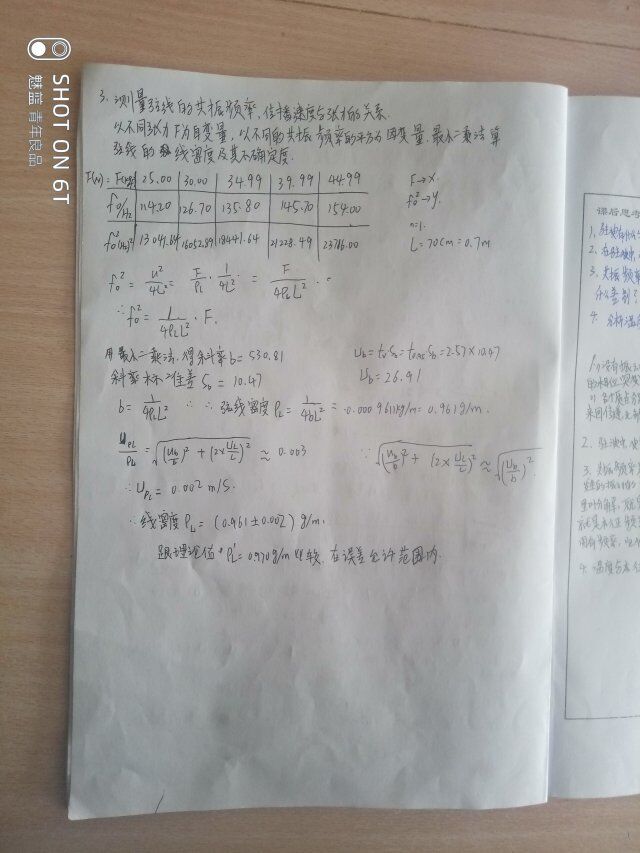 SHOT ON 6T
魅蓝 青年良品
3. 测量弦线的共振频率,传播速度与张力的关系.
以不同张力F为自变量,以不同的共振频率的平方为因变量,最小二乘法算
弦线的线密度及其不确定度.
25.00 30.00 34.99 39.99 44.99
f₀/Hz 114.20 126.70 135.80 145.70 154.00
f₀²(Hz)² 13041.64 16052.89 18441.64 21228.49 23716.00
F→x.
f₀²→y.
n=1.
L=70cm=0.7m
f₀² = u²/4L² = F/ρL · 1/4L² = F/4ρLL².
∴ f₀² = 1/4ρLL² · F.
用最小二乘法,得斜率b=530.81
斜率标准差 Sb = 10.47
Ub = tvSb = t0.95 Sb = 2.57×10.47
Ub = 26.91
b = 1/4ρLL² ∴ 弦线密度 ρL = 1/4bL² = 0.000961kg/m = 0.961g/m.
UρL/ρL = √(Ub/b)² + (2×UL/L)² ≈ 0.003
∵ √(Ub/b)² + (2×UL/L)² ≈ √(Ub/b)²
∴ UρL = 0.002 m/s.
∴ 线密度 ρL = (0.961±0.002) g/m.
跟理论值 ρL' = 0.970g/m 比较,在误差允许范围内.
课后思考
1、驻波有什么
2、在驻波中
3、共振频率
什么差别?
4、分析温
2、驻波中,波
4、温度